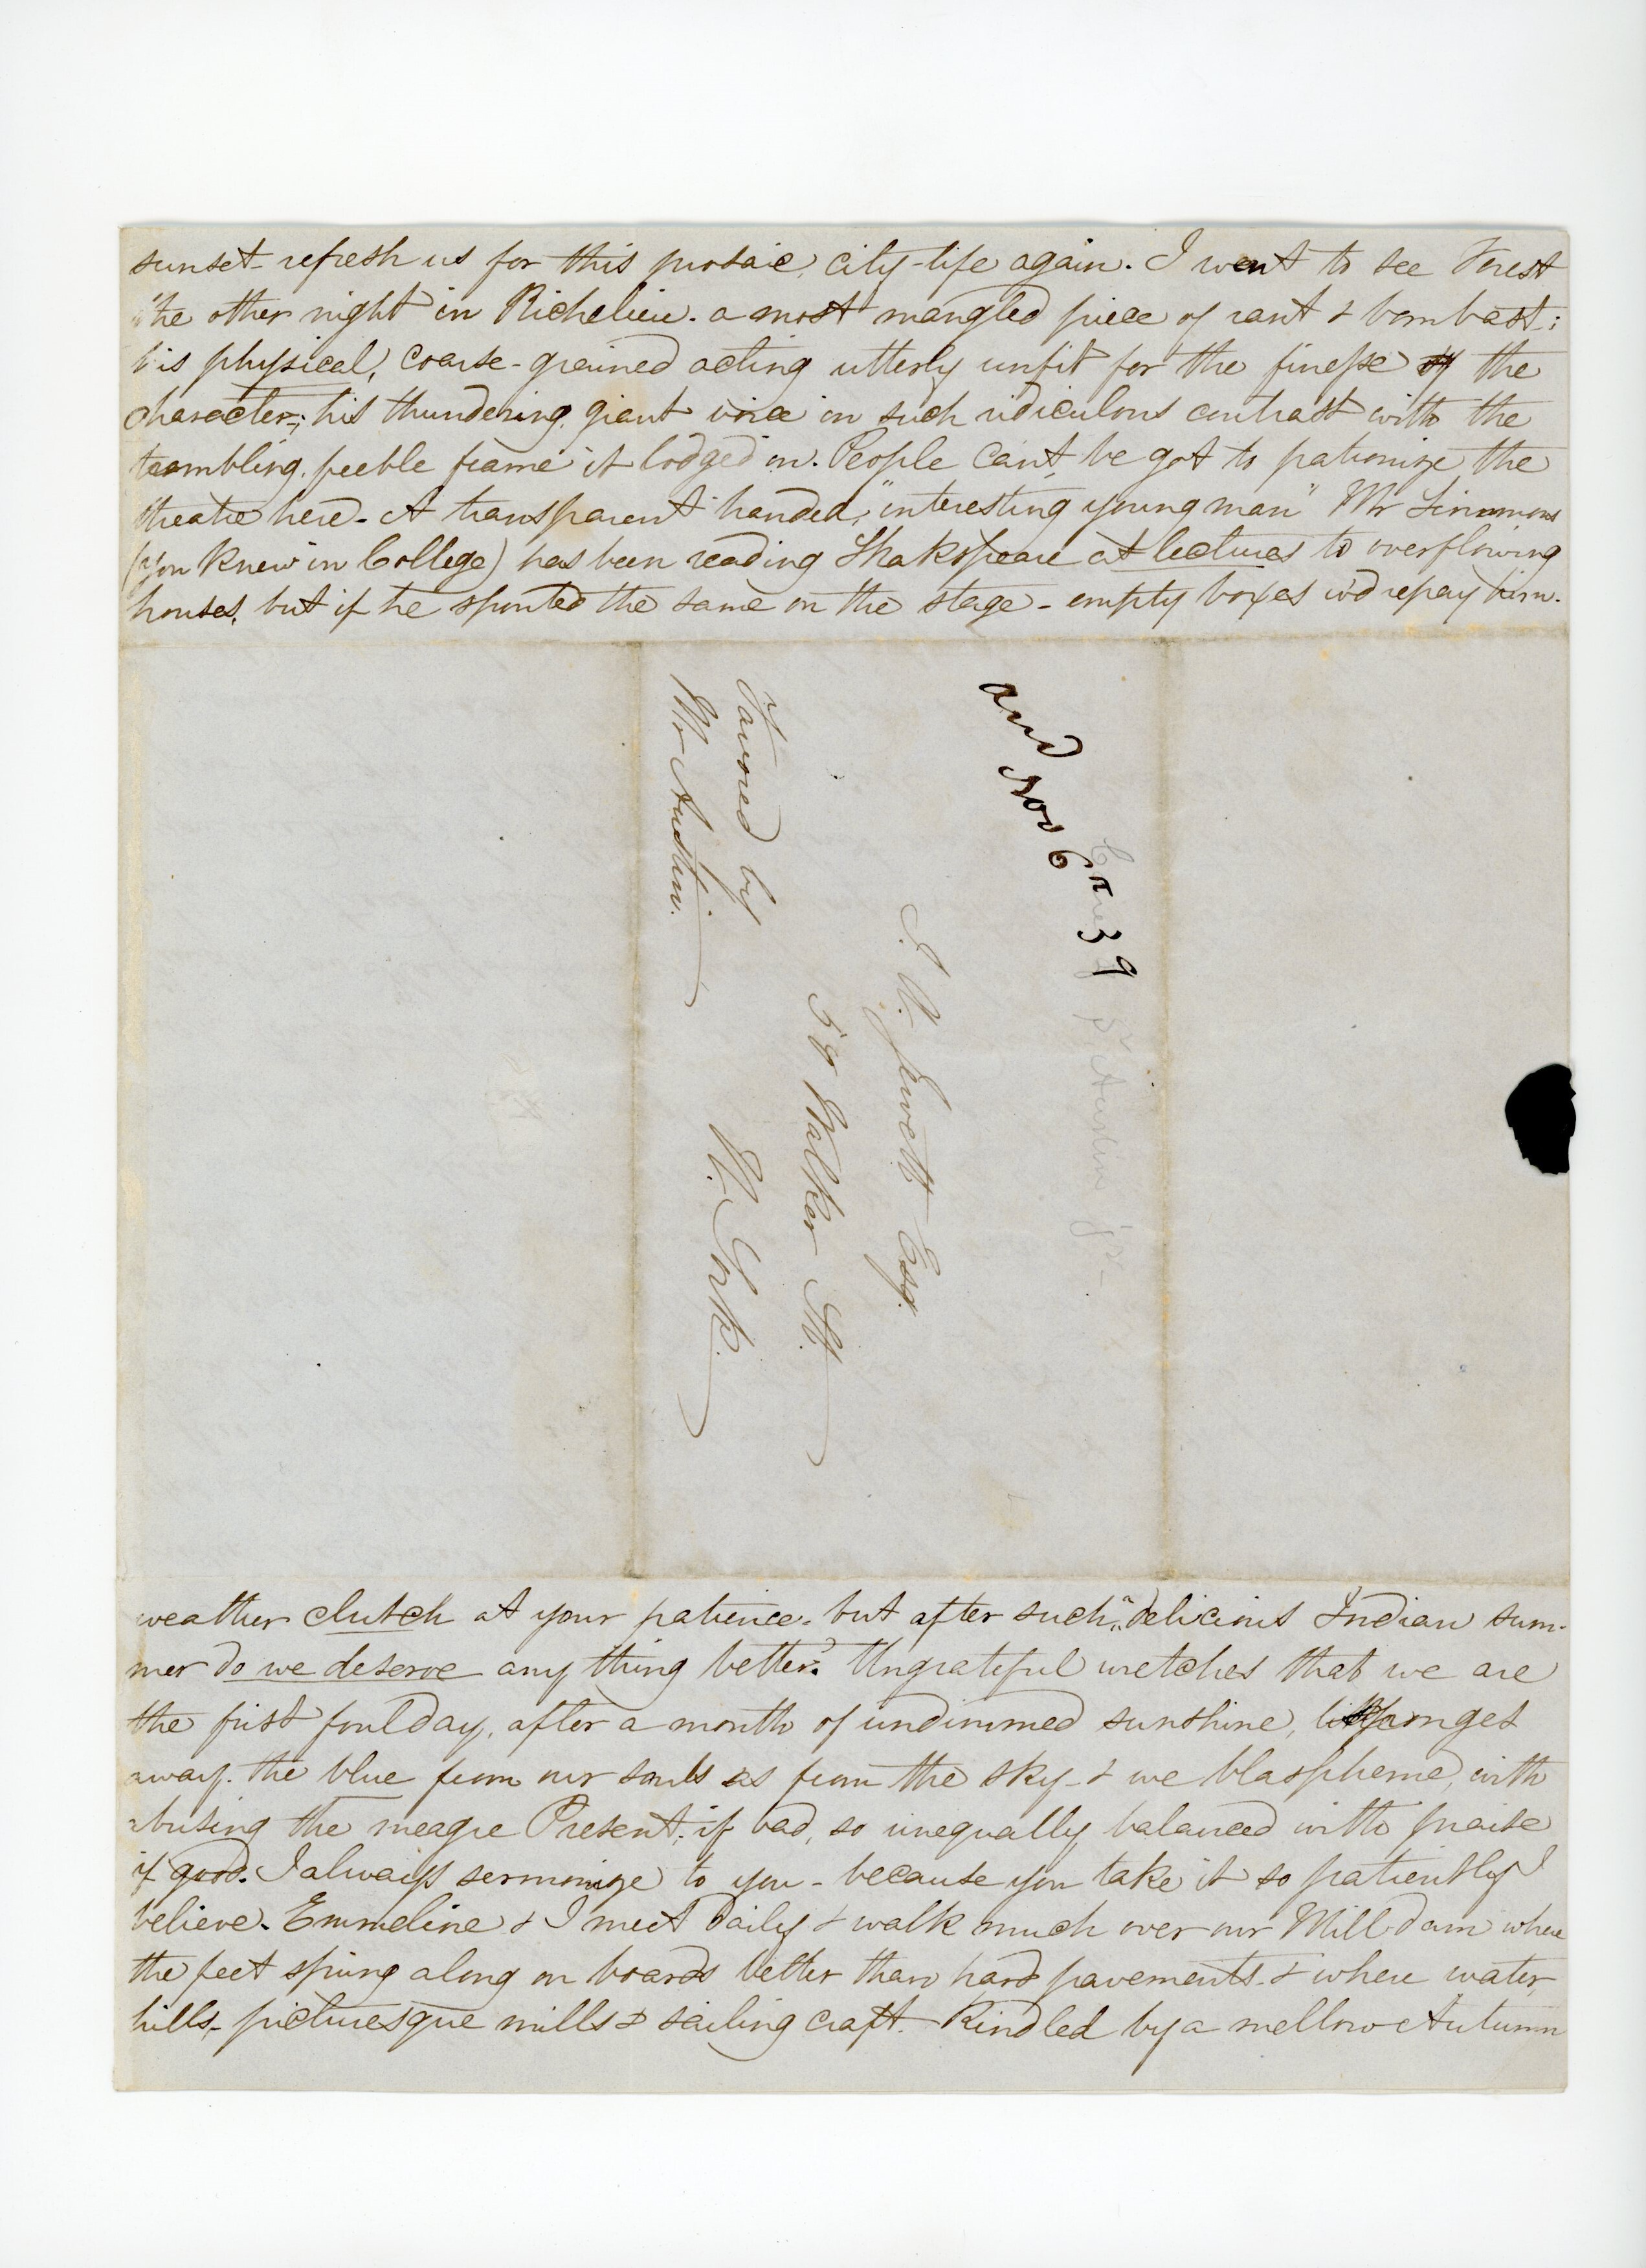 sunset - refresh us for this prosaic, city-life again. I went to see Forest
the other night in Richelieu. a most mangled piece of rant & bombast;
his physical, coarse-grained acting utterly unfit for the finesse of the
character; his thundering, giant voice in such ridiculous contrast with the
trembling, feeble frame it lodged in. People can't be got to patronize the
theatre here. A transparent handed, "interesting young man" Mr Simmons
(you knew in College) has been reading Shakspeare at lectures to overflowing
houses, but if he spouted the same on the stage - empty boxes wd repay him.
and Nov 6
39
S. W. Jewett Esq.
58 Walker St.
N. York.
Favored by
Mr Austin.
weather clutch at your patience. but after such a delicious Indian sum-
mer do we deserve any thing better? Ungrateful wretches that we are
the first foul day, after a month of undimmed sunshine, sponges
away the blue from our souls as from the sky - & we blaspheme, with
abusing the meagre Present, if bad, so unequally balanced with praise
if good. I always sermonize to you - because you take it so patiently I
believe. Emmeline & I meet daily & walk much over our Mill dam where
the feet spring along on boards better than hard pavements - & where water,
hills, picturesque mills & sailing craft. Kindled by a mellow Autumn